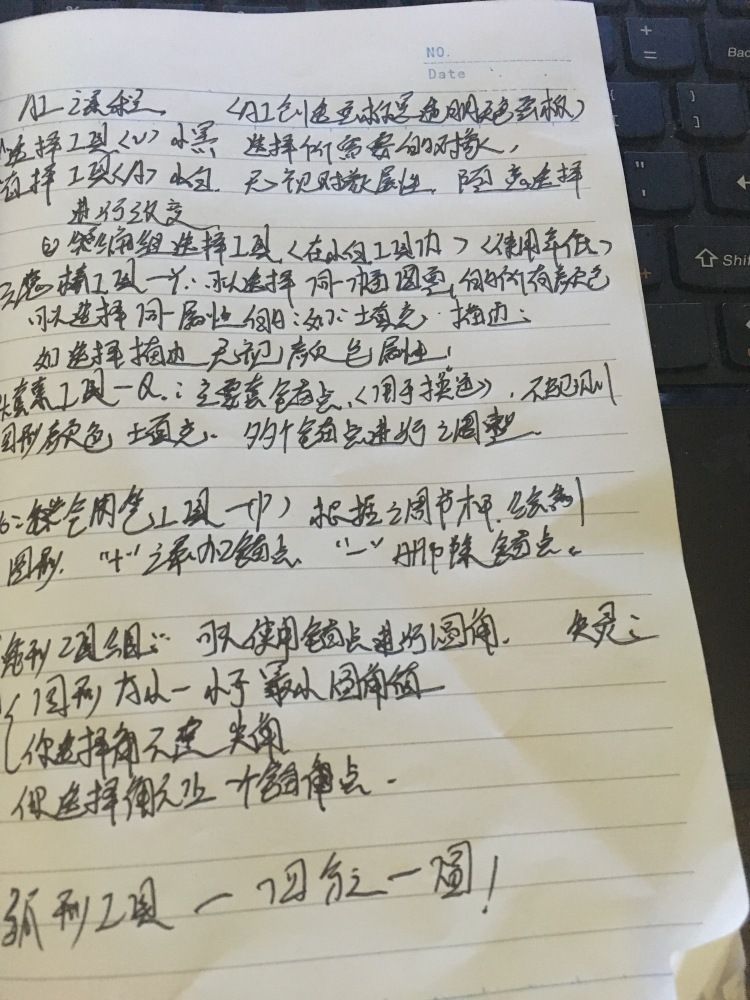 NO.
Date
AI 课程. <AI创建画板是透明色画板>
选择工具<V>小黑 选择所需要的对象,
直择工具<A>小白. 无视对象属性. 随意选择
进行改变
编组选择工具<在小白工具内><使用率低>
魔棒工具—Y: 可以选择同一幅图里的所有颜色
可以选择同一属性的: 如: 填充. 描边;
如选择描边无视颜色属性!
套索工具—Q.: 主要套锚点.<用于换色>. 不规则
图形颜色填充. 多个锚点进行调整.
钢笔工具—<P> 根据调节杆.绘制
图形. "+"添加锚点. "—"删除锚点.
矩形工具组: 可以使用锚点进行圆角. 失灵:
图形大小—小于最小圆角值
你选择角不是尖角
你选择角不止一个锚角点.
弧形工具—四分之一圆!
+
=
Back
{
[
"
'
Shift